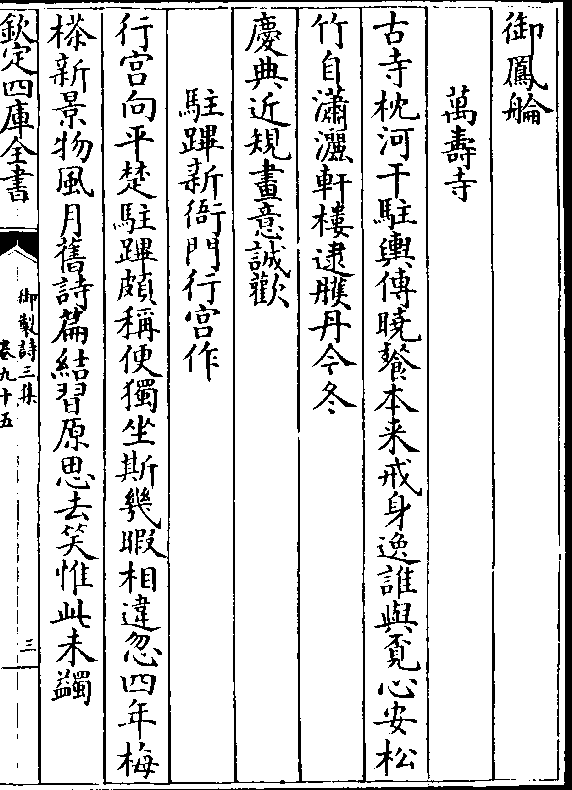 御鳳艫
萬壽寺
古寺枕河干駐輿傳曉餐本来戒身逸誰與覔心安松
竹自瀟灑軒樓逮雘丹今冬
慶典近規畫意誠歡
駐蹕新衙門行宫作
行宫向平楚駐蹕頗稱便獨坐斯幾暇相違忽四年梅
𣗳新景物風月舊詩篇結習原思去笑惟此未蠲
欽定四庫全書
御製詩三集
卷九十五
三